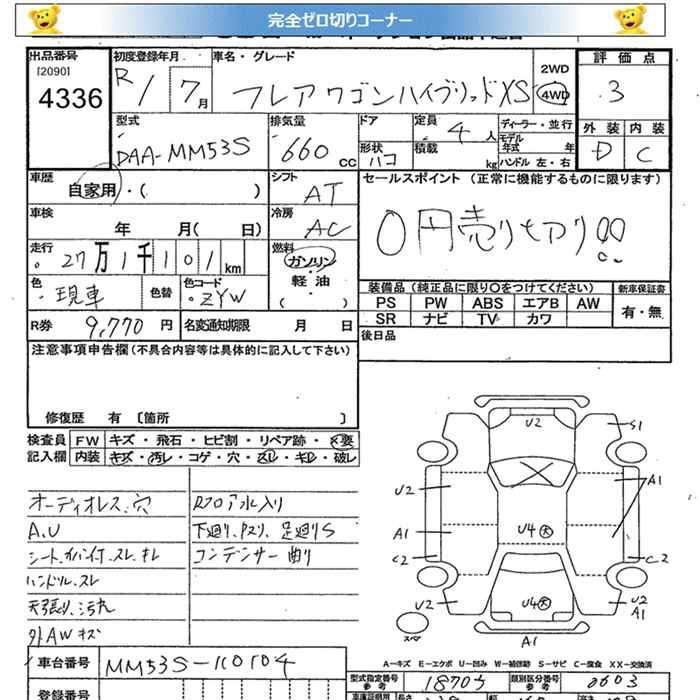 完全ゼロ切りコーナー
出品番号
[2090]
4336
初度登録年月
R1 7月
車名・グレード
フレアワゴンハイブリッドXS
2WD
4WD
評価点
3
外装 内装
D C
型式
DAA-MM53S
排気量
660 cc
ドア
形状
ハコ
定員
4人
積載
kg
ディーラー・並行
モデル
年式 年
ハンドル 左・右
車歴
自家用・( )
シフト
AT
セールスポイント (正常に機能するものに限ります)
0円売りもアリ!!
車検
年 月( 日)
冷房
AC
走行
27万1千101km
燃料
ガソリン
・
軽油
( )
色
現車
色替
色コード
ZYW
装備品 (純正品に限り〇をつけてください)
新車保証書
PS PW ABS エアB AW
SR ナビ TV カワ
有・無
R券 9,770 円
名変通知期限 月 日
後日品
注意事項申告欄 (不具合内容等は具体的に記入して下さい)
修復歴 有 〔箇所 〕
検査員
記入欄
FW キズ・飛石・ヒビ割・リペア跡・×要
内装 キズ・汚レ・コゲ・穴・スレ・キレ・破レ
オーディオレス、穴
A.U
シート、スレ、キレ
ハンドル、スレ
天張り、汚れ
外AWキズ
Rフロア水入り
下廻り、足廻りS
コンデンサー曲り
U2
S1
U2
A1
A1
U4 大
C2
C2
U2
U4 大
U2
A1
スペア
A1
A－キズ E－エクボ U－凹み W－補修跡 S－サビ C－腐食 XX－交換済
車台番号
MM53S-110104
型式指定番号
参考
18705
類別区分番号
参考
0603
登録番号
車庫証明用
長さ
幅
高さ